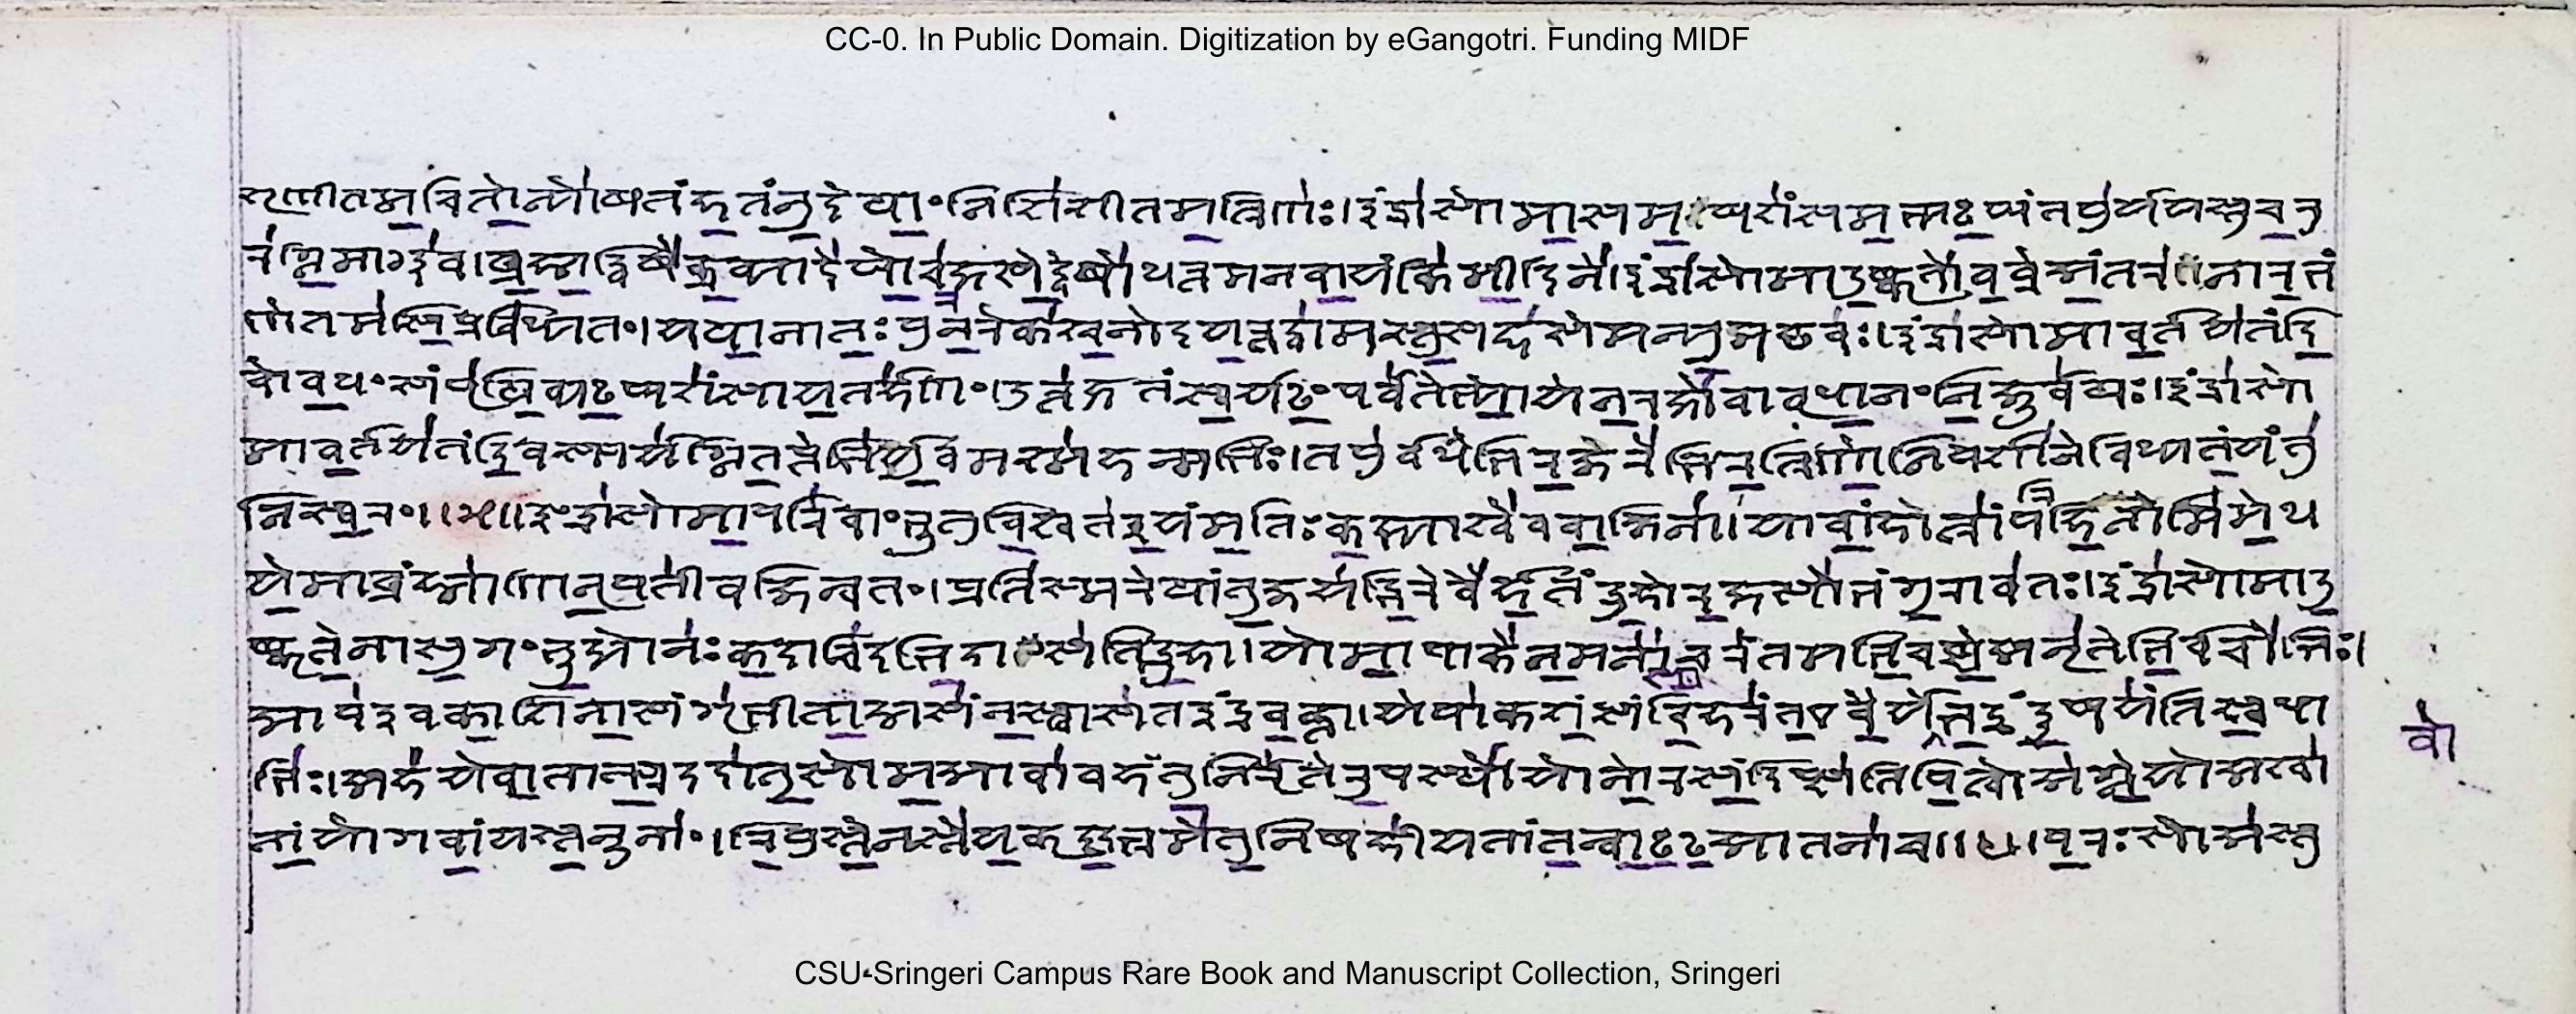 शृणीतमचितोन्योषतंहतंनुदेथांनिशिशीतमत्रिणः।इंद्रासोमासमघशंसमभ्य१घंतपुर्ययस्तुचरु
रग्निमाँइव।ब्रह्मद्विषेक्रव्यादेघोरचक्षसेद्वेषोधत्तमनवायंकिमीदिने।इंद्रासोमादुष्कृतोवव्रेअंतरनारंभ
णेतमसिप्रविध्यतं।यथानातःपुनरेकश्चनोदयत्तद्वामस्तुशवसेमन्युमच्छवः।इंद्रासोमावर्तयतंदि
वोवधंसंपृथिव्याअघशंसायतर्हणं।उत्तक्षतंस्वर्यं१पर्वतेभ्योयेनरक्षोवावृधानंनिजूर्वथः।इंद्रासो
मावर्तयतंदिवस्पर्यग्नितप्तेभिर्युवमश्महन्मभिः।तपुर्वधेभिरजरेभिरत्रिणोनिपर्शानेविध्यतंयंतु
निस्वरं॥५॥इंद्रासोमापरिवांभूतुविश्वतइयंमतिःकक्ष्याश्वेववाजिना।यांवांहोत्रांपरिहिनोमिमेध
येमाब्रंह्माणिनृपतीवजिन्वतं।प्रतिस्मरेथांतुजयद्भिरेवैर्हतंद्रुहोरक्षसोभंगुरावतः।इंद्रासोमादु
ष्कृतेमासुगंभूद्योनःकदाचिदभिदासतिद्रुहा।योमापाकेनमनसाचरंतमभिचष्टेअनृतेभिर्वचोभिः।
आपइवकाशिनासंगृभीताअसंनस्त्वासतइंद्रवक्ता।येपाकशंसंविहरंतएवैर्येभद्रंदूषयंतिस्वधा
वा
भिः।अहयेवातान्प्रददातुसोमआवादधातुनिरृतेरुपस्थे।योनोरसंदिप्सतिपित्वोअग्नेयोअश्वा
नांयोगवांयस्तनूनां।रिपुस्तेनस्तेयकृद्दभ्रमेतुनिषहीयतांतन्वा३तनाच॥६॥परःसोअस्तु
CC-0. In Public Domain. Digitization by eGangotri. Funding MIDF
CSU-Sringeri Campus Rare Book and Manuscript Collection, Sringeri